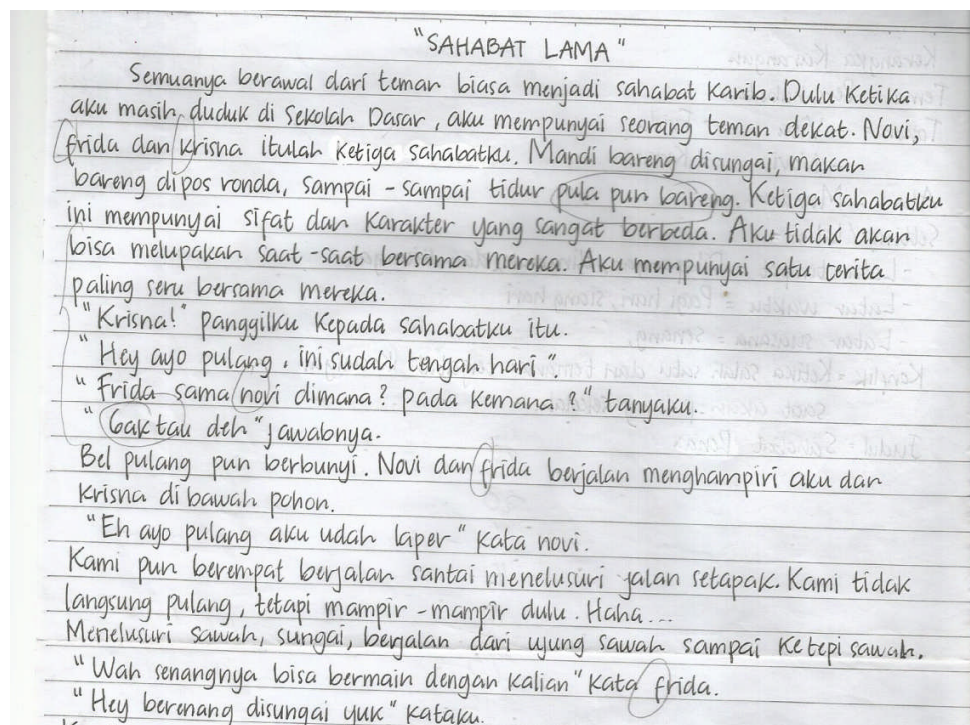 "SAHABAT LAMA"
Semuanya berawal dari teman biasa menjadi sahabat karib. Dulu ketika
aku masih duduk di Sekolah Dasar, aku mempunyai seorang teman dekat. Novi,
frida dan krisna itulah ketiga sahabatku. Mandi bareng disungai, makan
bareng dipos ronda, sampai-sampai tidur pula pun bareng. Ketiga sahabatku
ini mempunyai sifat dan karakter yang sangat berbeda. Aku tidak akan
bisa melupakan saat-saat bersama mereka. Aku mempunyai satu cerita
paling seru bersama mereka.
"Krisna!" panggilku kepada sahabatku itu.
"Hey ayo pulang, ini sudah tengah hari".
"Frida sama novi dimana? pada kemana?" tanyaku.
"Gak tau deh" jawabnya.
Bel pulang pun berbunyi. Novi dan frida berjalan menghampiri aku dan
krisna di bawah pohon.
"Eh ayo pulang aku udah laper" kata novi.
Kami pun berempat berjalan santai menelusuri jalan setapak. Kami tidak
langsung pulang, tetapi mampir-mampir dulu. Haha...
Menelusuri sawah, sungai, berjalan dari ujung sawah sampai ketepi sawah.
"Wah senangnya bisa bermain dengan kalian" kata frida.
"Hey berenang disungai yuk" kataku.